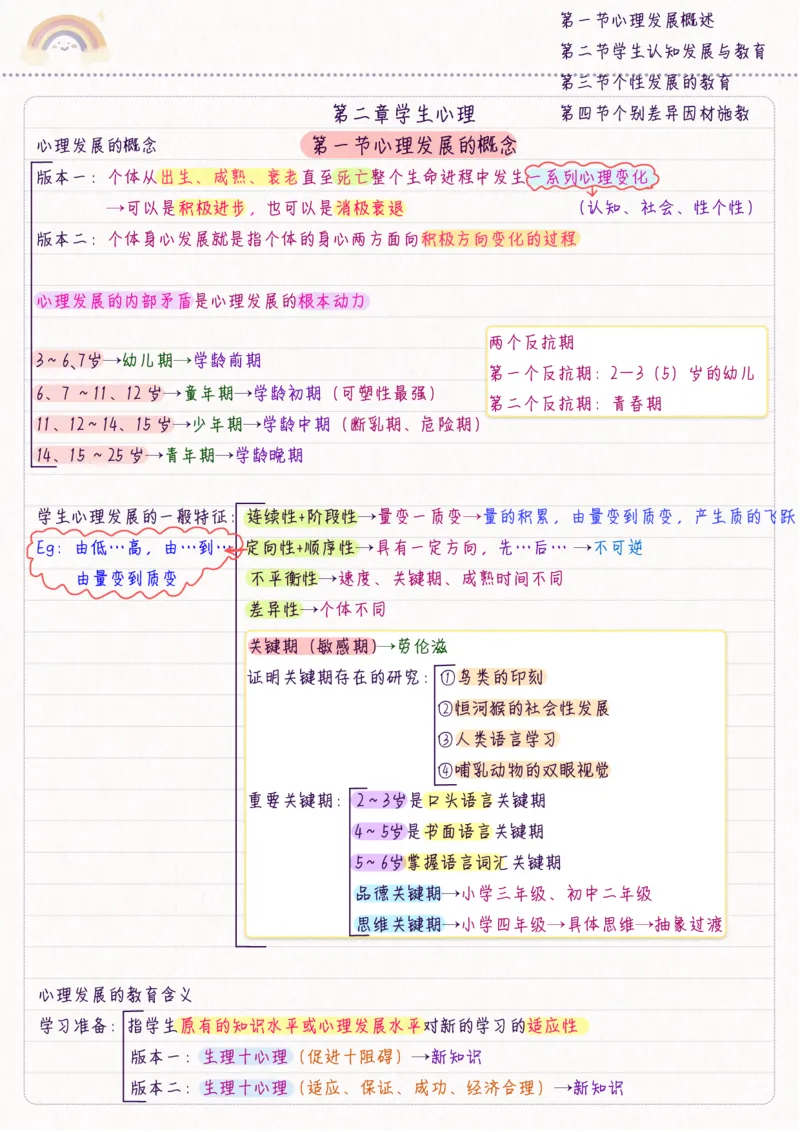 第一节心理发展概述
第二节学生认知发展与教育
第三节个性发展的教育
第四节个别差异因材施教
第二章学生心理
心理发展的概念
第一节心理发展的概念
版本一：个体从出生、成熟、衰老直至死亡整个生命进程中发生一系列心理变化
→可以是积极进步，也可以是消极衰退
（认知、社会、性个性）
版本二：个体身心发展就是指个体的身心两方面向积极方向变化的过程
心理发展的内部矛盾是心理发展的根本动力
两个反抗期
第一个反抗期：2—3（5）岁的幼儿
第二个反抗期：青春期
3~6、7岁→幼儿期→学龄前期
6、7~11、12岁→童年期→学龄初期（可塑性最强）
11、12~14、15岁→少年期→学龄中期（断乳期、危险期）
14、15~25岁→青年期→学龄晚期
学生心理发展的一般特征：连续性+阶段性→量变一质变→量的积累，由量变到质变，产生质的飞跃
Eg：由低…高，由…到…
由量变到质变
定向性+顺序性→具有一定方向，先…后…→不可逆
不平衡性→速度、关键期、成熟时间不同
差异性→个体不同
关键期（敏感期)→劳伦滋
证明关键期存在的研究：①鸟类的印刻
②恒河猴的社会性发展
③人类语言学习
④哺乳动物的双眼视觉
重要关键期：2~3岁是口头语言关键期
4~5岁是书面语言关键期
5~6岁掌握语言词汇关键期
品德关键期→小学三年级、初中二年级
思维关键期→小学四年级→具体思维→抽象过渡
心理发展的教育含义
学习准备：指学生原有的知识水平或心理发展水平对新的学习的适应性
版本一：生理十心理（促进十阻碍）→新知识
版本二：生理十心理（适应、保证、成功、经济合理）→新知识